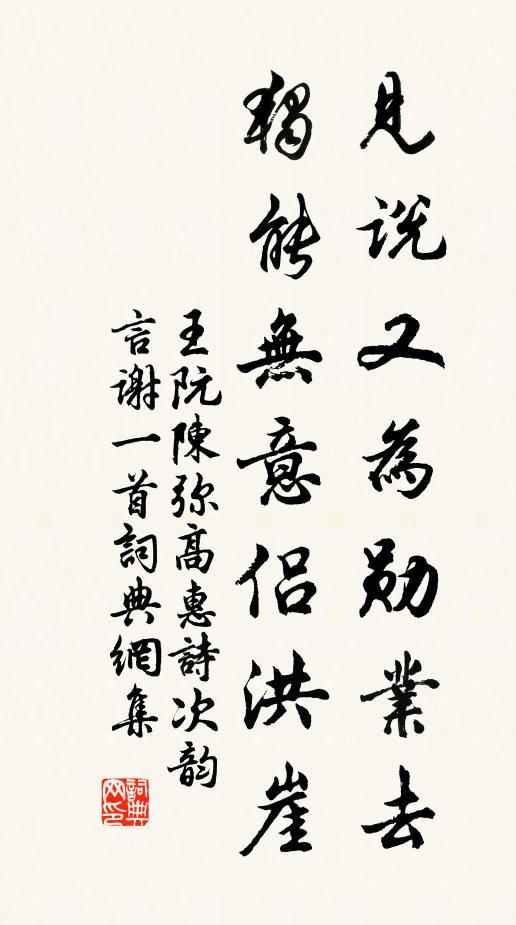 見說又為勛業去
獨能無意侶洪崖
王阮陳弥高惠詩次韵
言謝一首詞典網集
詞典网印